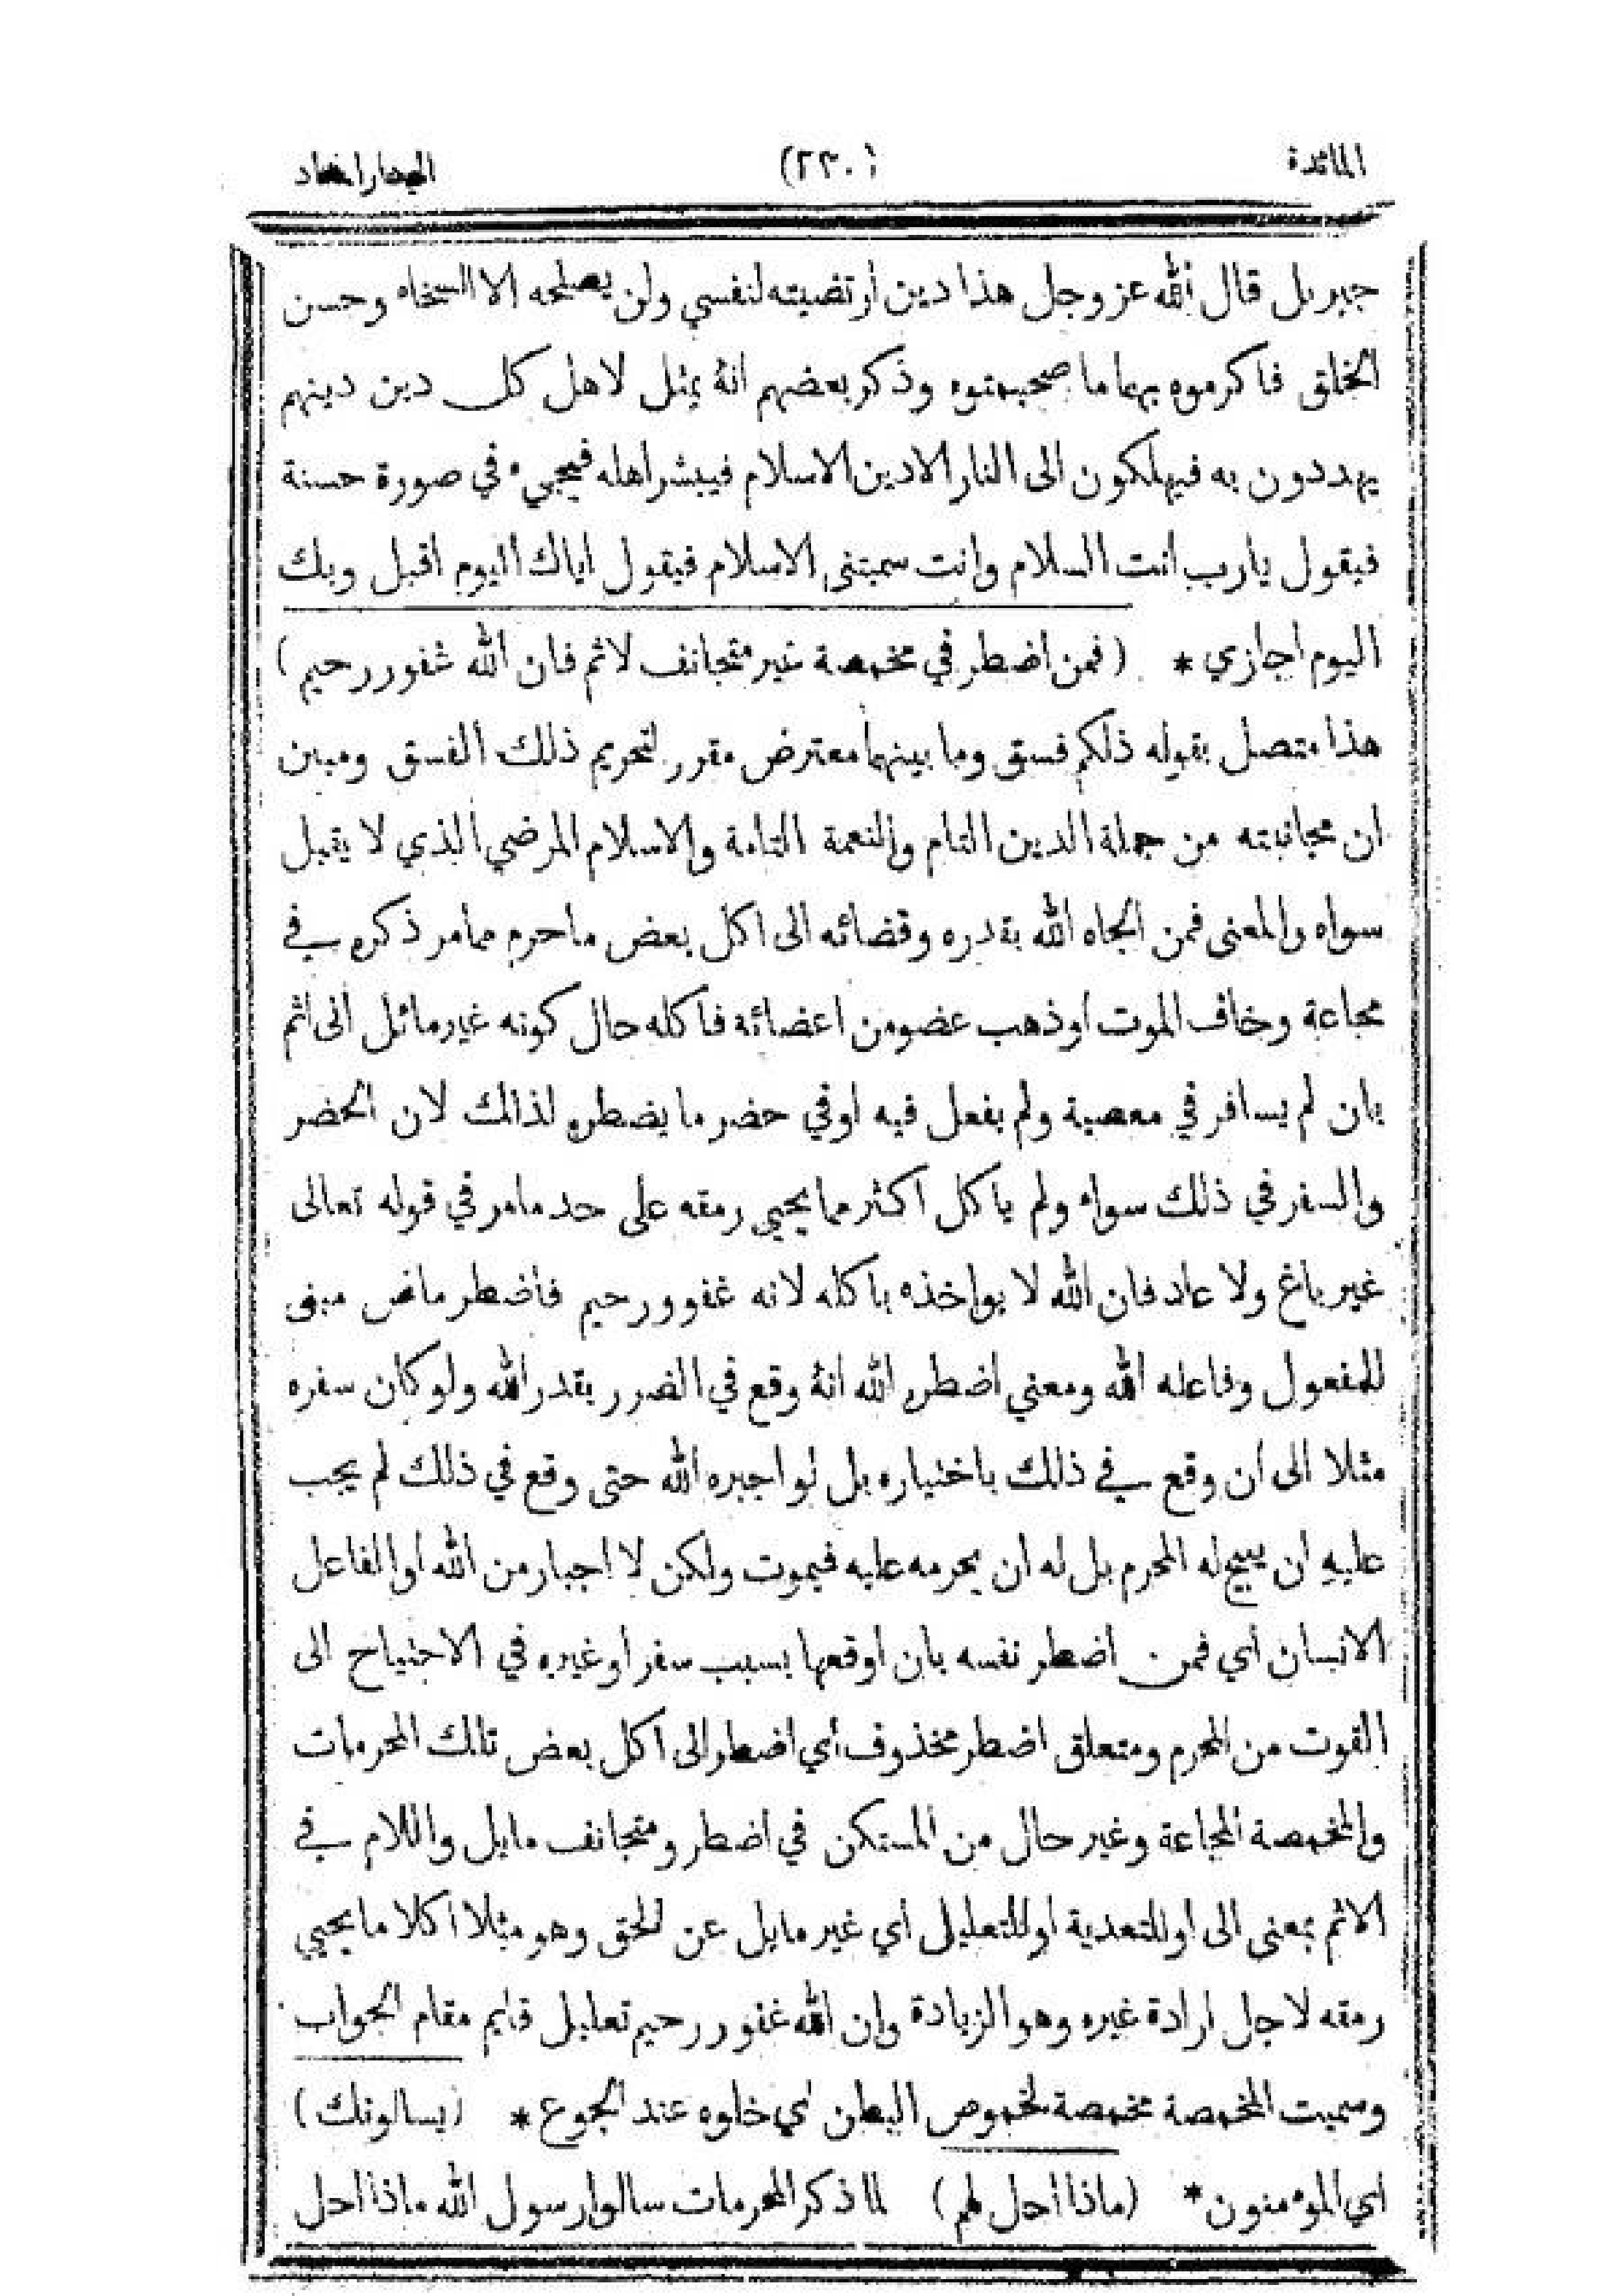 المائدة (٢٣٠)
جبريل قال الله عز وجل هذا دين أرتضيته لنفسي ولن يصلحه الا السخاء وحسن
الخلق فاكرموه بهما ما صحبتموه وذكر بعضهم انهُ يمثل لاهل كل دين دينهم
يهددون به فيهلكون الى النار الا دين الاسلام فيبشر اهله فيجيء في صورة حسنة
فيقول يارب انت السلام وانت سميتني الاسلام فيقول اياك اليوم اقبل وبك
اليوم اجازي * (فمن اضطر في مخمصة غير متجانف لاثم فان الله غفور رحيم)
هذا متصل بقوله ذلكم فسق وما بينهما معترض مقرر لتحريم ذلك الفسق ومبين
ان مجانبته من جملة الدين التام والنعمة التامة والاسلام المرضي الذي لا يقبل
سواه والمعنى فمن الجاه الله بقدره وقضائه الى اكل بعض ما حرم مما مر ذكره في
مجاعة وخاف الموت او ذهب عضو من اعضائه فاكله حال كونه غير مائل الى اثم
بان لم يسافر في معصية ولم يفعل فيه او في حضر ما يضطره لذلك لان الحضر
والسفر في ذلك سواء ولم ياكل اكثر مما يحيي رمقه على حد ما مر في قوله تعالى
غير باغ ولا عاد فان الله لا يواخذه باكله لانه غفور رحيم فاضطر ماض مبني
للمفعول وفاعله الله ومعني اضطره الله انهُ وقع في الضرر بقدر الله ولو كان سفره
مثلا الى ان وقع في ذلك باختياره بل لو اجبره الله حتى وقع في ذلك لم يجب
عليهِ ان يبيح له المحرم بل له ان يحرمه عليه فيموت ولكن لا اجبار من الله او الفاعل
الانسان أي فمن اضطر نفسه بان اوقعها بسبب سفر أو غيره في الاحتياج الى
القوت من المحرم ومتعلق اضطر محذوف أي اضطر الى اكل بعض تلك المحرمات
والمخمصة المجاعة وغير حال من المستكن في اضطر ومتجانف مايل واللام في
الاثم بمعنى الى او للتعدية او للتعليل أي غير مايل عن الحق وهو مثلا اكلا ما يحيي
رمقه لاجل ارادة غيره وهو الزيادة وان الله غفور رحيم تعليل قايم مقام الجواب
وسميت المخمصة مخمصة لخموص البطن اي خلوه عند الجوع * (يسالونك)
اي المؤمنون * (ماذا أحل لهم) لما ذكر المحرمات سالوا رسول الله ماذا احل